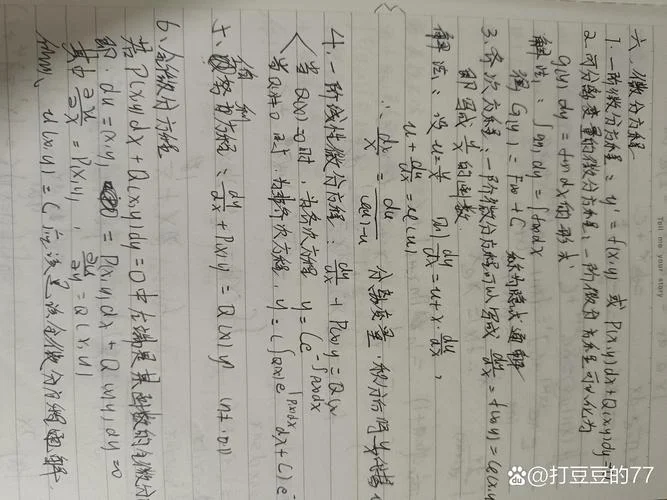 六、微分方程
1. 一阶微分方程：y' = f(x,y) 或 P(x,y)dx+Q(x,y)dy=0
2. 可分离变量的微分方程：一阶微分方程可以化为
g(y)dy = f(x)dx的形式
解法：∫g(y)dy = ∫f(x)dx
得 G(y) = F(x)+C 称为隐式通解
3. 齐次方程：一阶微分方程可以写成 dy/dx = f(x,y) = φ(x,y)
即写成 的函数
解法：设 u= 则 dy/dx = u+x·du/dx,
u + = φ(u)
∴ dx/x = du/(φ(u)-u) 分离变量，积分后
4. 一阶线性微分方程：dy/dx + P(x)y = Q(x)
当Q(x)=0时，为齐次方程 y = Ce^(-∫P(x)dx)
当Q(x)≠0时，为非齐次方程，y = (∫Q(x)e^(∫P(x)dx) dx + C)e
5. 伯努利方程：dy/dx + P(x)y = Q(x)y^n (n≠0,1)
6. 全微分方程
若P(x,y)dx + Q(x,y)dy=0中左端是某函数的全微分
即：du(x,y) = P(x,y)dx + Q(x,y)dy=0
其中 ∂u/∂x = P(x,y), ∂u/∂y = Q(x,y)
u(x,y) = C 应该是该全微分方程通解
Tell me your story
@打豆豆的77